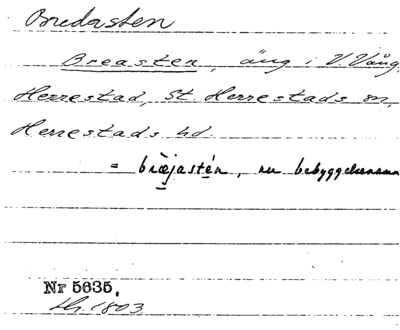 Bredasten
Breasten, äng i V. Vång,
Herrestad, St Herrestads sn,
Herrestads hd.
= bræjastén, nu bebyggelsenamn
Nr 5635.
1803